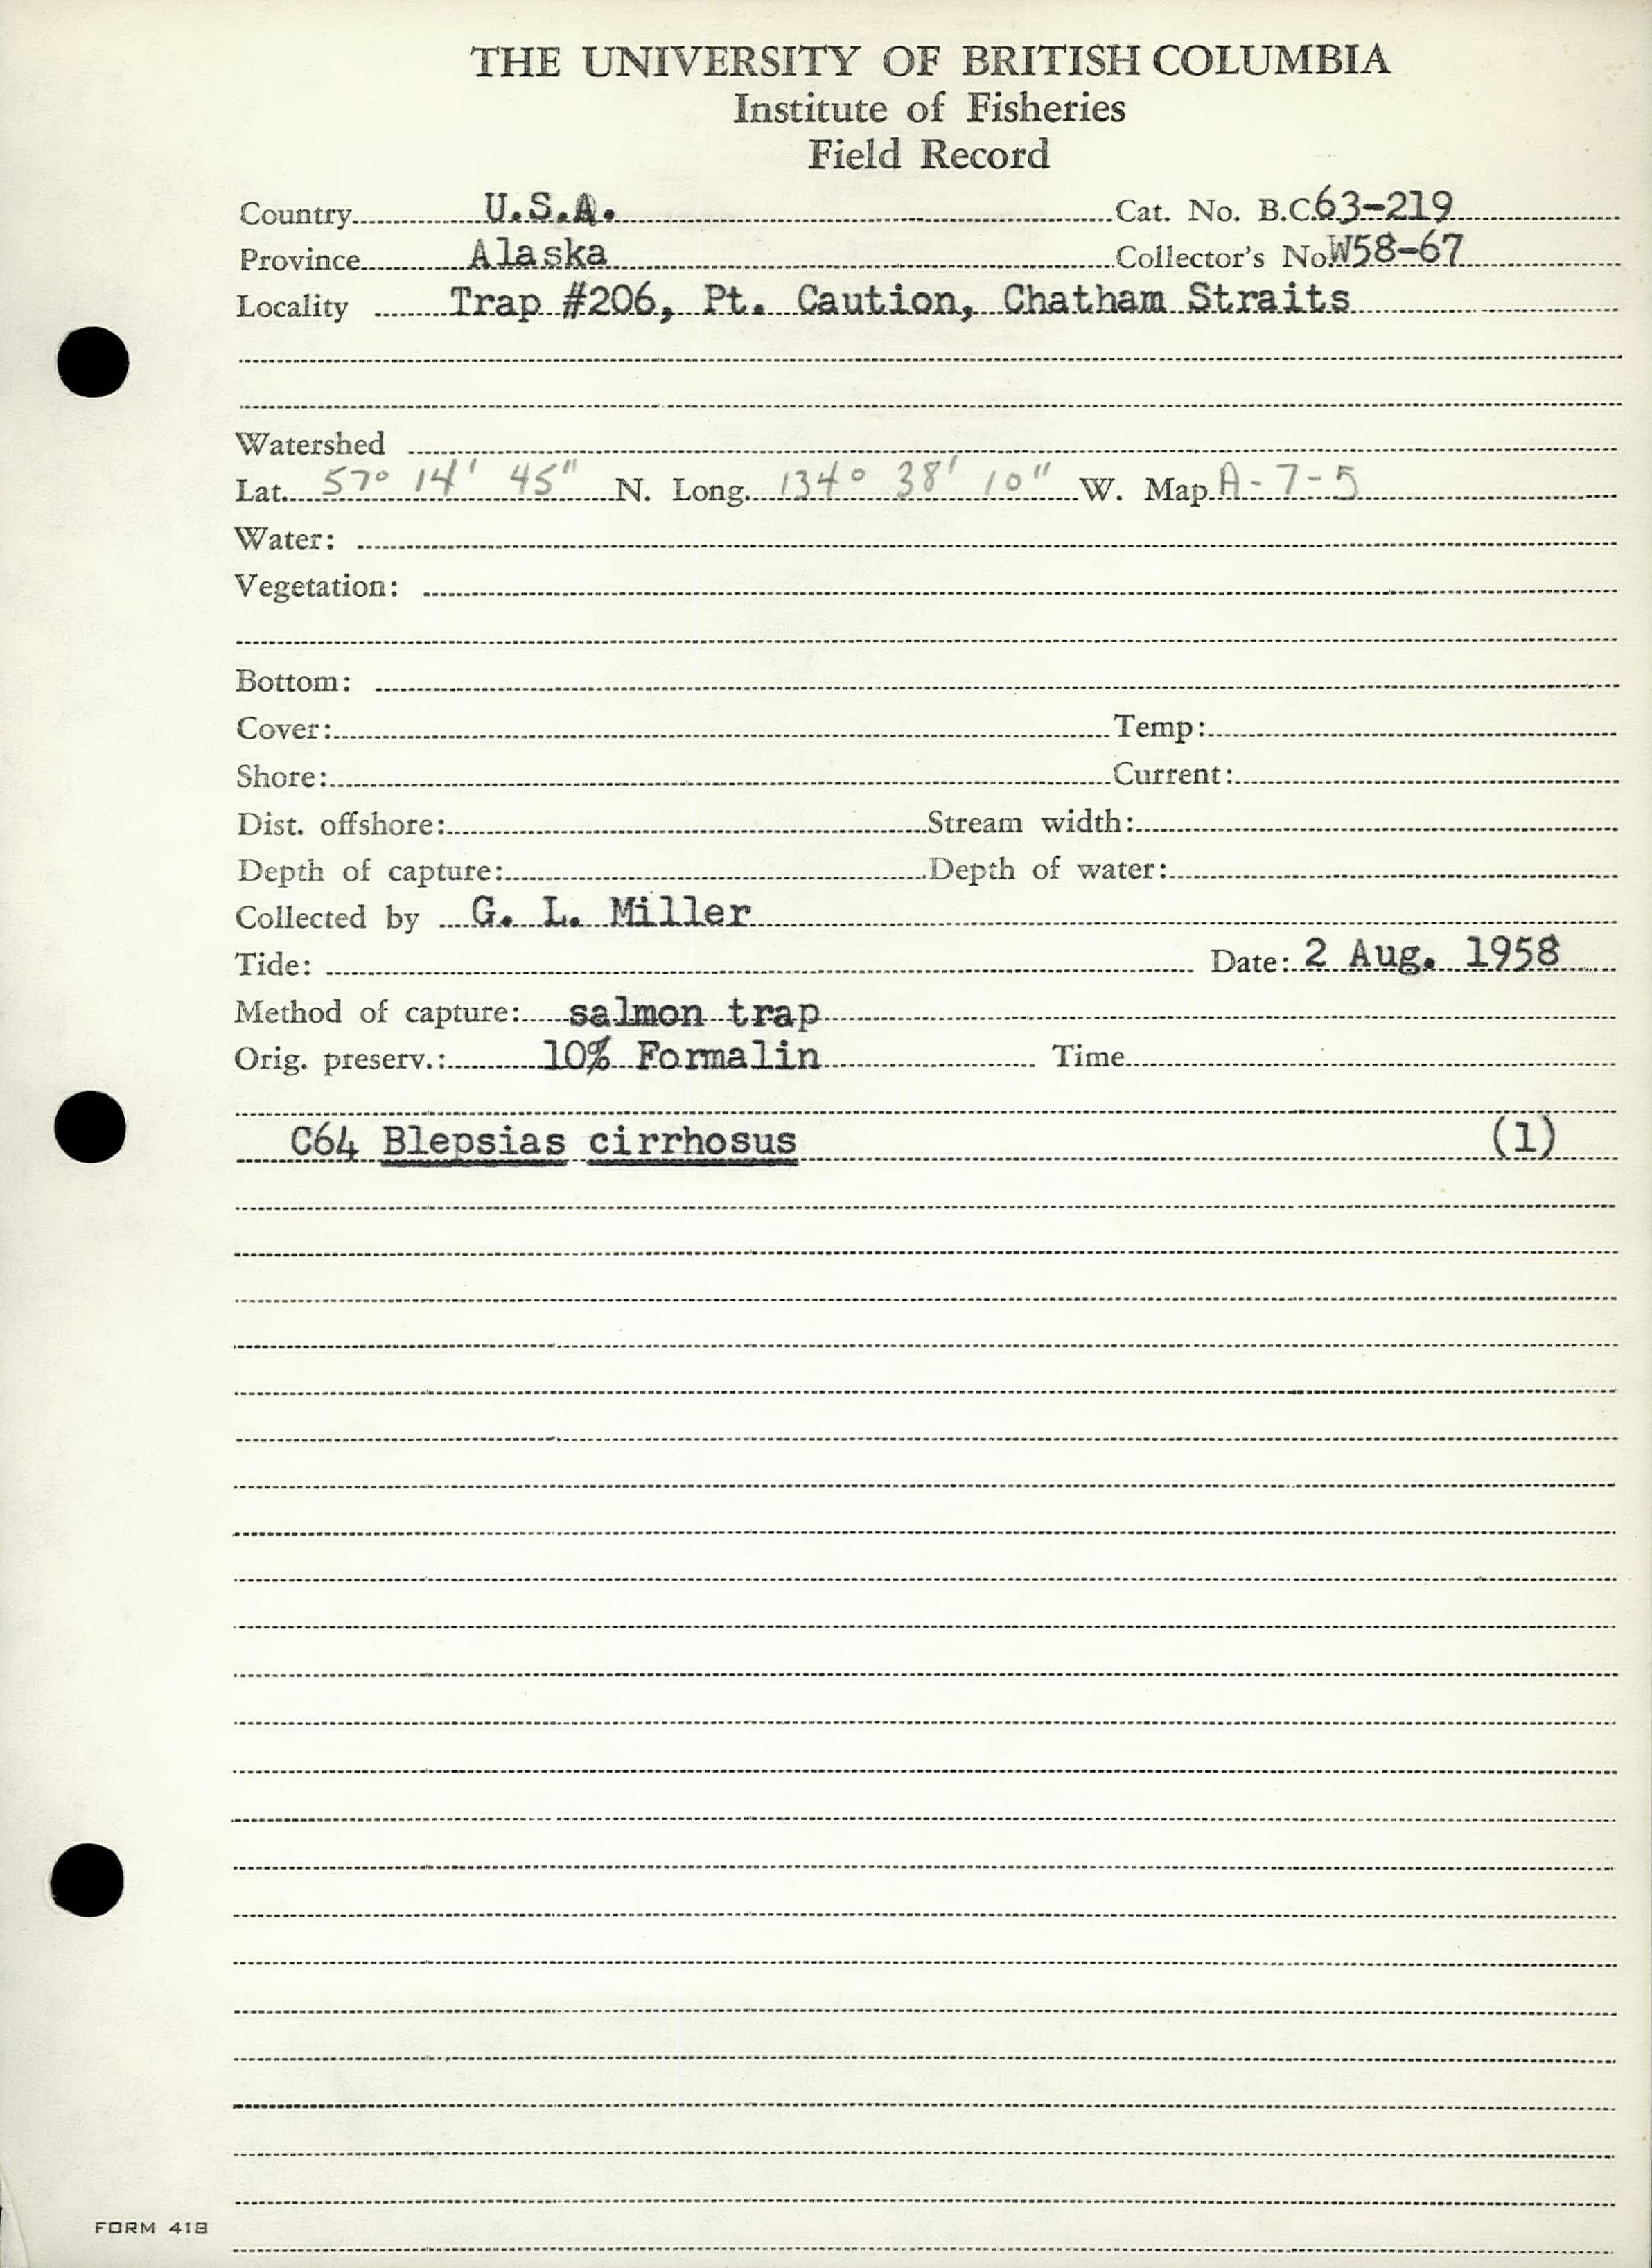 THE UNIVERSITY OF BRITISH COLUMBIA
Institute of Fisheries
Field Record
Country U.S.A. Cat. No. B.C. 63-219
Province Alaska Collector's No. W58-67
Locality Trap #206, Pt. Caution, Chatham Straits
Watershed
Lat. 57° 14' 45" N. Long. 134° 38' 10" W. Map A-7-5
Water:
Vegetation:
Bottom:
Cover: Temp:
Shore: Current:
Dist. offshore: Stream width:
Depth of capture: Depth of water:
Collected by G. L. Miller
Tide: Date: 2 Aug. 1958
Method of capture: salmon trap
Orig. preserv.: 10% Formalin Time
C64 Blepsias cirrhosus (1)
FORM 41B